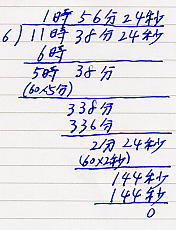 1時 56分 24秒
6)11時 38分 24秒
6時
5時 38分
(60×5分)
338分
336分
2分 24秒
(60×2秒)
144秒
144秒
0